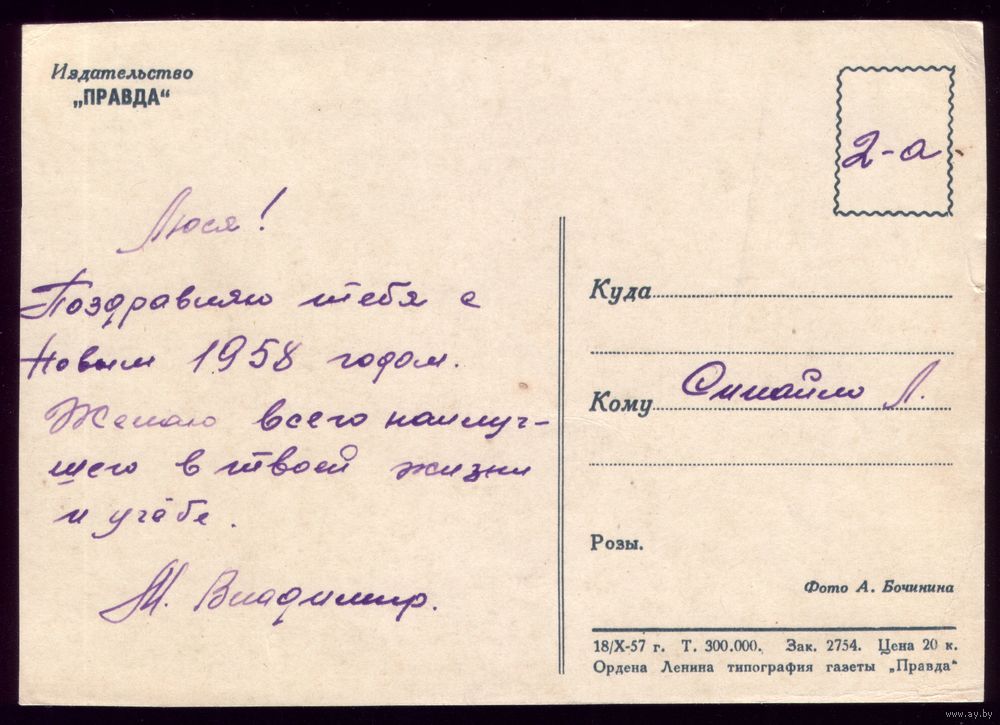 Издательство
„ПРАВДА“
2-а
Люся!
Поздравляю тебя с
Новым 1958 годом.
Желаю всего наилуч-
шего в твоей жизни
и учёбе.
Владимир.
Куда
Кому Л.
Розы.
Фото А. Бочинина
18/X-57 г. Т. 300.000. Зак. 2754. Цена 20 к.
Ордена Ленина типография газеты „Правда“
www.ay.by